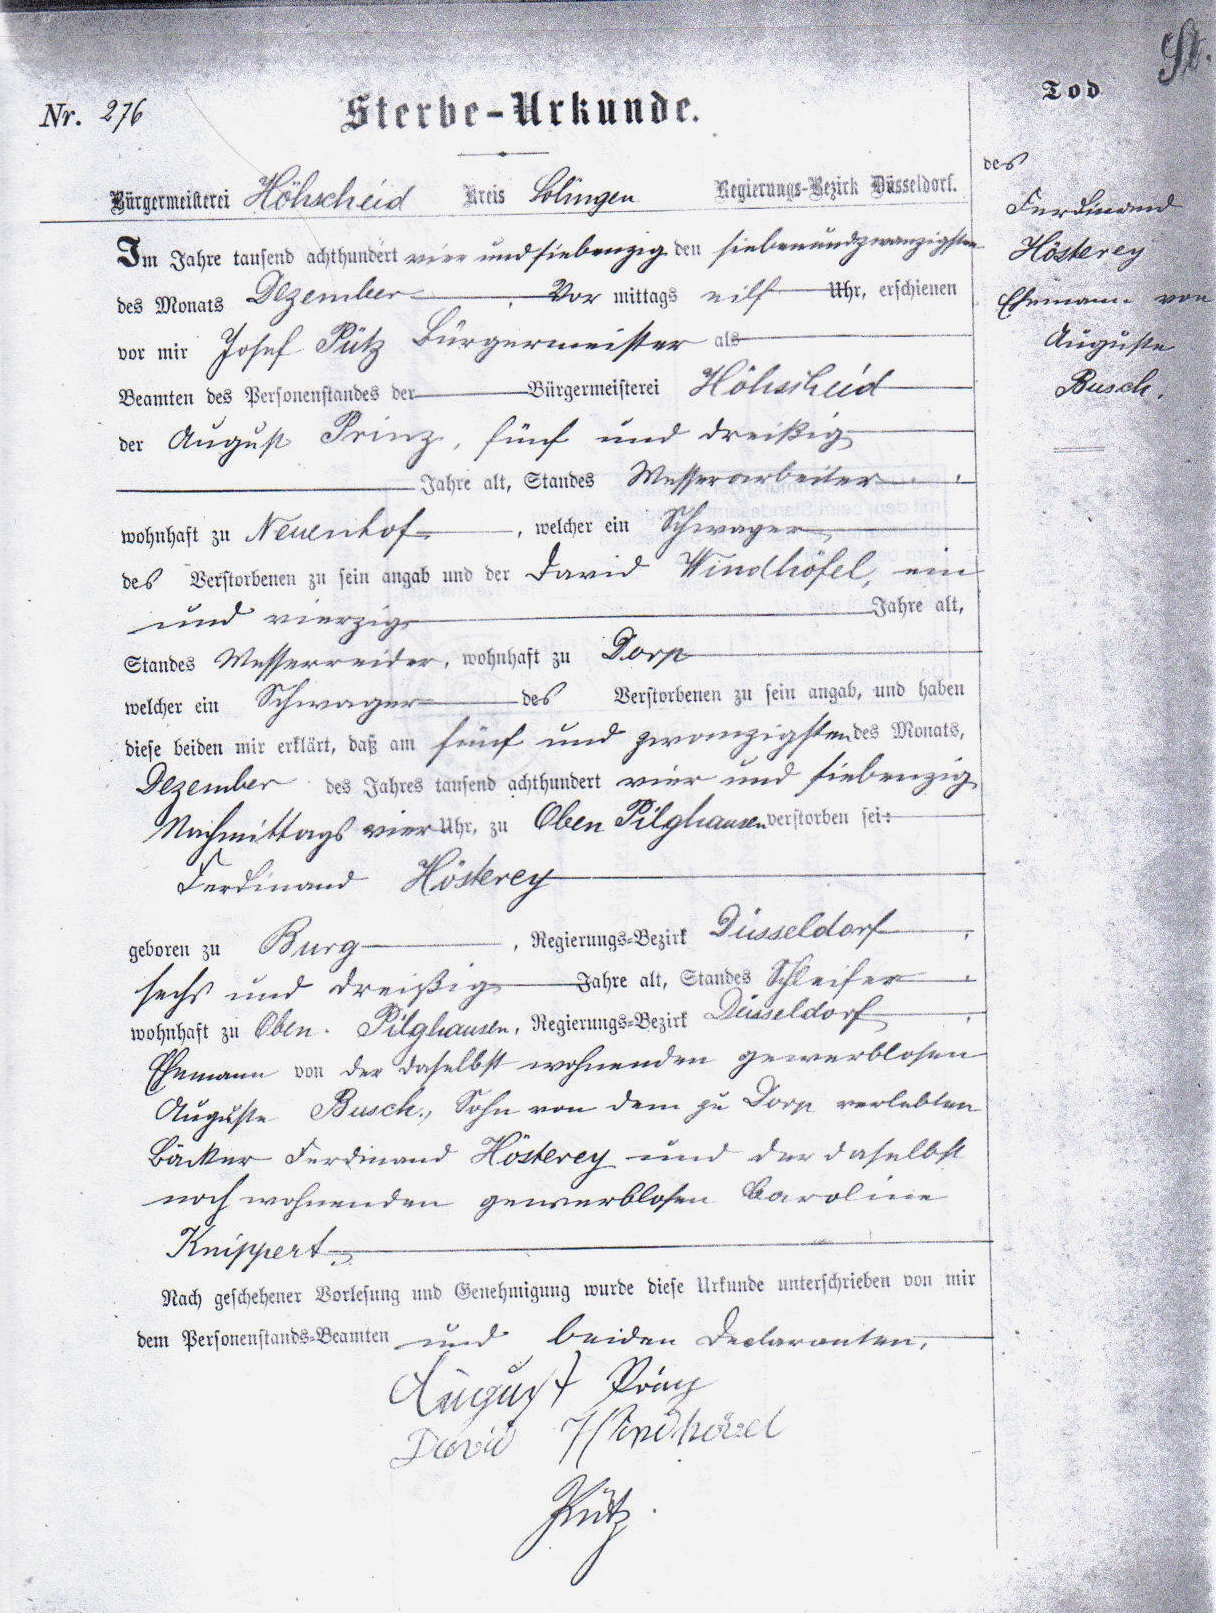 St.
Nr. 276
Sterbe-Urkunde.
Bürgermeisterei Höhscheid Kreis Solingen Regierungs-Bezirk Düsseldorf.
Im Jahre tausend achthundert vier und siebenzig den siebenundzwanzigsten
des Monats Dezember, Vor mittags eilf Uhr, erschienen
vor mir Josef Pütz Bürgermeister als
Beamten des Personenstandes der Bürgermeisterei Höhscheid
der August Prinz, fünf und dreißig
Jahre alt, Standes Messerarbeiter,
wohnhaft zu Neuenhof, welcher ein Schwager
des Verstorbenen zu sein angab und der David Windhöfel, ein
und vierzig Jahre alt,
Standes Messerreider, wohnhaft zu Dorp
welcher ein Schwager des Verstorbenen zu sein angab, und haben
diese beiden mir erklärt, daß am fünf und zwanzigsten des Monats,
Dezember des Jahres tausend achthundert vier und siebenzig
Nachmittags vier Uhr, zu Oben Pilghausen verstorben sei:
Ferdinand Hösterey
geboren zu Burg, Regierungs-Bezirk Düsseldorf,
sechs und dreißig Jahre alt, Standes Schleifer,
wohnhaft zu Oben. Pilghausen, Regierungs-Bezirk Düsseldorf,
Ehemann von der daselbst wohnenden gewerblosen
Auguste Busch., Sohn von dem zu Dorp verlebten
Bäcker Ferdinand Hösterey und der daselbst
noch wohnenden gewerblosen Caroline
Knippert.
Nach geschehener Vorlesung und Genehmigung wurde diese Urkunde unterschrieben von mir
dem Personenstands-Beamten und beiden Declaranten.
August Prinz
David Windhövel
Pütz.
Tod
des
Ferdinand
Hösterey
Ehemann von
Auguste
Busch.